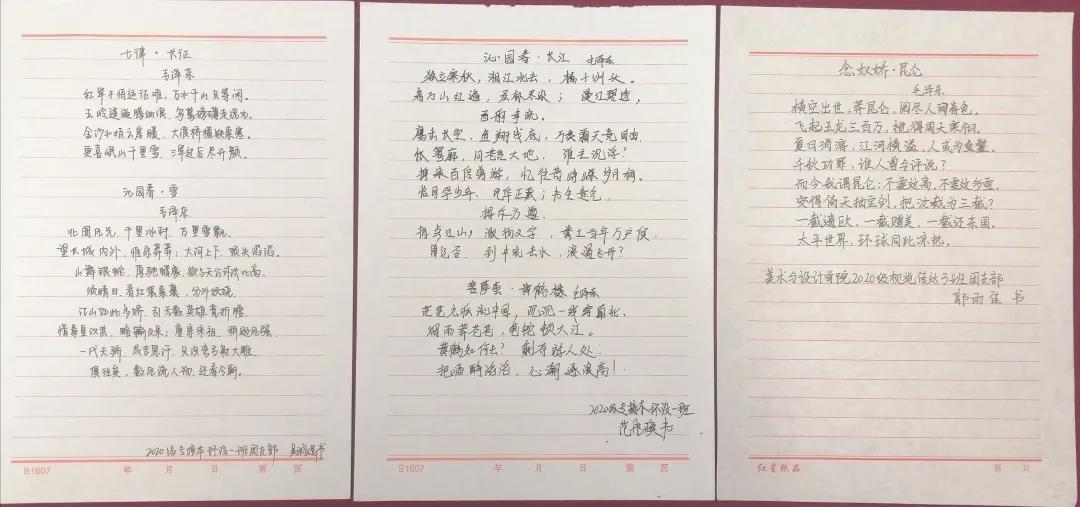 七律·长征
毛泽东
红军不怕远征难，万水千山只等闲。
五岭逶迤腾细浪，乌蒙磅礴走泥丸。
金沙水拍云崖暖，大渡桥横铁索寒。
更喜岷山千里雪，三军过后尽开颜。
沁园春·雪
毛泽东
北国风光，千里冰封，万里雪飘。
望长城内外，惟余莽莽；大河上下，顿失滔滔。
山舞银蛇，原驰蜡象，欲与天公试比高。
须晴日，看红装素裹，分外妖娆。
江山如此多娇，引无数英雄竞折腰。
惜秦皇汉武，略输文采；唐宗宋祖，稍逊风骚。
一代天骄，成吉思汗，只识弯弓射大雕。
俱往矣，数风流人物，还看今朝。
2020级支撑本环设一班团支部
B1607 年 月 日 第 页
沁园春·长江 毛泽东
独立寒秋，湘江北去，橘子洲头。
看万山红遍，层林尽染；漫江碧透，
百舸争流。
鹰击长空，鱼翔浅底，万类霜天竞自由。
怅寥廓，问苍茫大地，谁主沉浮？
携来百侣曾游，忆往昔峥嵘岁月稠。
恰同学少年，风华正茂；书生意气，
挥斥方遒。
指点江山，激扬文字，粪土当年万户侯。
曾记否，到中流击水，浪遏飞舟？
菩萨蛮·黄鹤楼 毛泽东
茫茫九派流中国，沉沉一线穿南北。
烟雨莽苍苍，龟蛇锁大江。
黄鹤知何去？剩有游人处。
把酒酹滔滔，心潮逐浪高！
2020级支撑本环设一班
书
B1607 年 月 日 第 页
念奴娇·昆仑
毛泽东
横空出世，莽昆仑，阅尽人间春色。
飞起玉龙三百万，搅得周天寒彻。
夏日消溶，江河横溢，人或为鱼鳖。
千秋功罪，谁人曾与评说？
而今我谓昆仑：不要这高，不要这多雪。
安得倚天抽宝剑，把汝裁为三截？
一截遗欧，一截赠美，一截还东国。
太平世界，环球同此凉热。
美术与设计学院2020级视觉传达3班团支部
郭雨佳 书
红星纸品 第 页